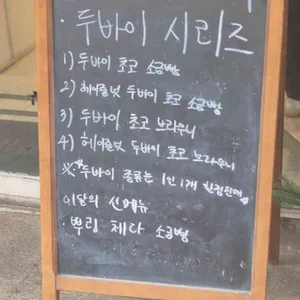 · 두바이 시리즈
1) 두바이 초코 소금빵
2) 헤이즐넛 두바이 초코 소금빵
3) 두바이 초코 브라우니
4) 헤이즐넛 두바이 초코 브라우니
※ 두바이 종류는 1인 1개 한정판매
이달의 신메뉴
· 뿌링 체다 소금빵